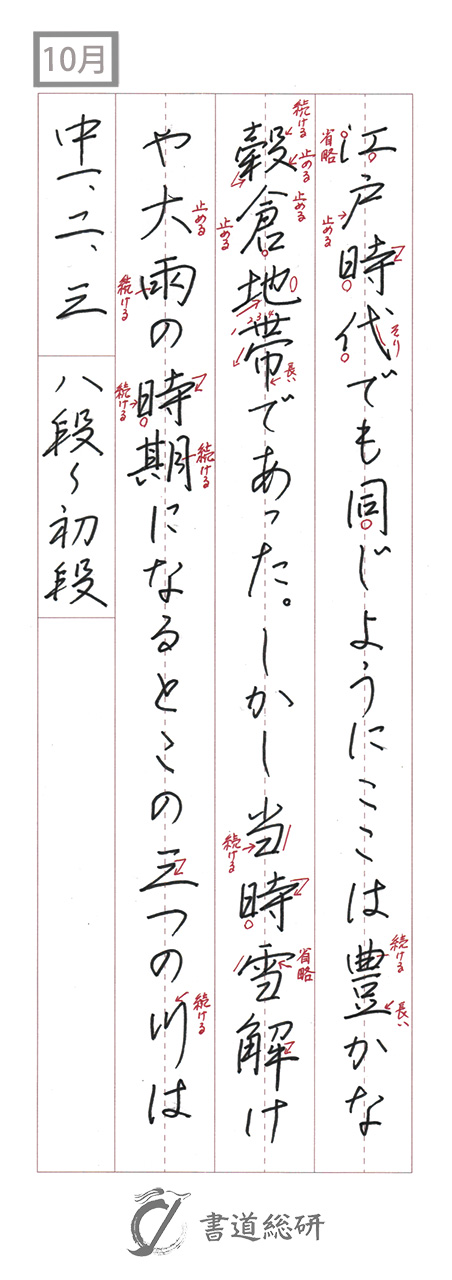 10月
江戸時代でも同じようにここは豊かな
穀倉地帯であった。しかし当時雪解け
や大雨の時期になるとこの三つの川は
中一、二、三 八段〜初段
省略
止める
そり
続ける
長い
続ける
止める
止める
止める
1 2 3 4
長い
続ける
省略
止める
続ける
続ける
続ける
続ける
書道総研